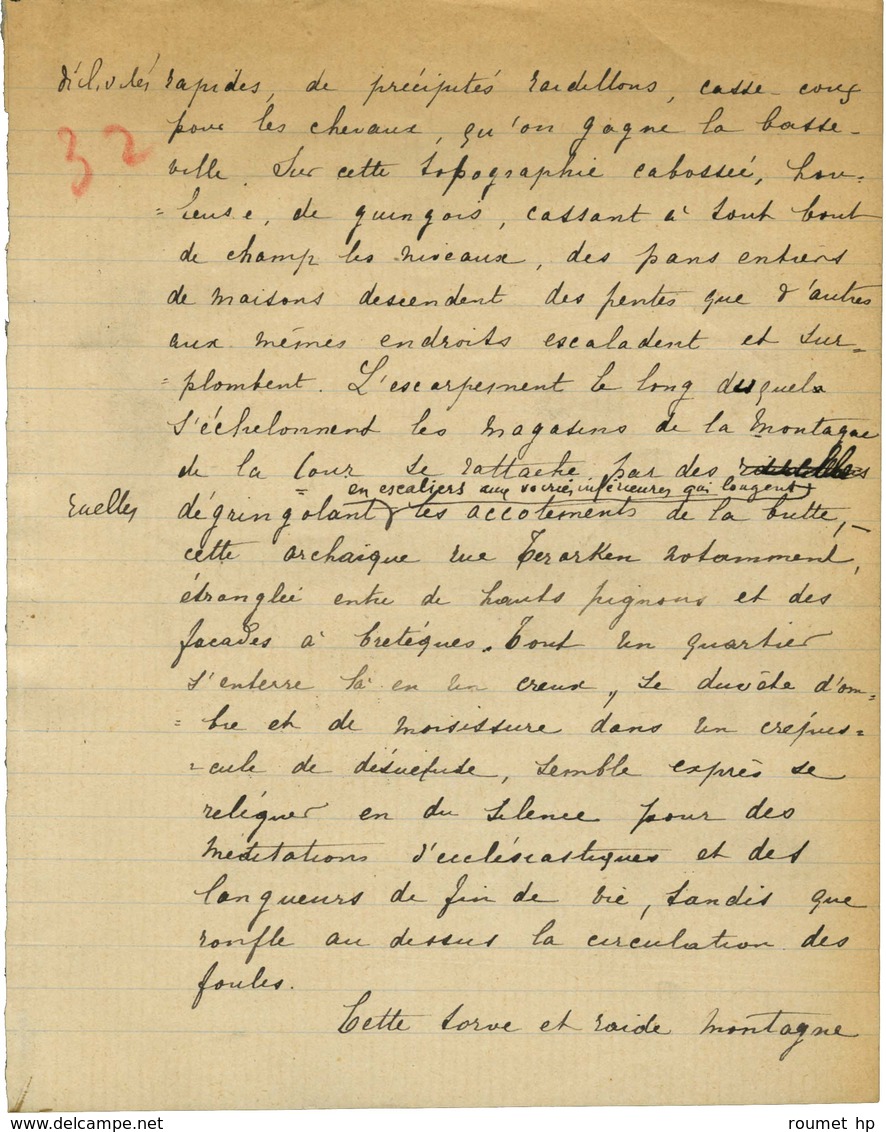 déclivités rapides, de précipités raidillons, casse-cous
32
pour les chevaux, qu'on gagne la basse-
ville. Sur cette topographie cabossée, hou-
=leuse, de guingois, cassant à tout bout
de champ les niveaux, des pans entiers
de maisons descendent des pentes que d'autres
aux mêmes endroits escaladent et sur=
=plombent. L'escarpement le long duquel
s'échelonnent les magasins de la Montagne
de la Cour se rattache par des
en escaliers aux voiries inférieures qui longent
ruelles dégringolant les accotements de la butte, -
cette archaïque rue Terarken notamment,
étranglée entre de hauts pignons et des
facades à bretèques. Tout un quartier
s'enterre là en un creux, se duvète d'om=
=bre et de moisissure dans un crépus=
=cule de désuétude, semble exprès se
reléguer en du silence pour des
méditations d'ecclésiastiques et des
langueurs de fin de vie, tandis que
ronfle au dessus la circulation des
foules.
Cette torve et raide montagne
roumet hp